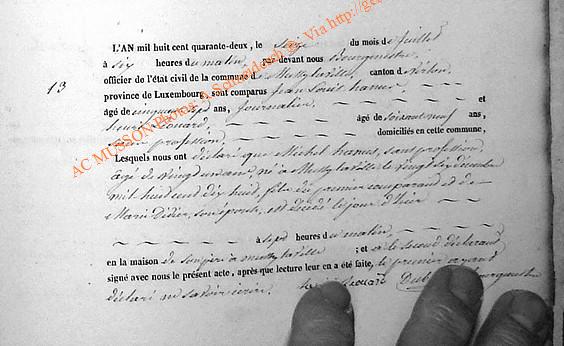 L'AN mil huit cent quarante-deux, le Seize du mois de Juillet
à Six heures du matin, par devant nous Bourgmestre
officier de l'état civil de la commune de Mussy la ville, canton de Virton,
13
province de Luxembourg, sont comparus Jean Louis hamus
âgé de cinquante sept ans, Journalier et
henri Rouard, âgé de Soixante neuf ans,
Sans profession domiciliés en cette commune,
Lesquels nous ont déclaré que Michel hamus, sans profession
âgé de Vingt né à Mussy la ville le Vingt six décembre
mil huit cent dix huit, fils du premier comparant et de
Marie Didier, son épouse, est décédé le jour d'hier
à sept heures du matin,
en la maison de son père à mussy la ville ; et a le Second déclarant
signé avec nous le présent acte, après que lecture leur en a été faite, le premier ayant
déclaré ne savoir écrire.
AC MUSSON Photos: A. Via http://ge